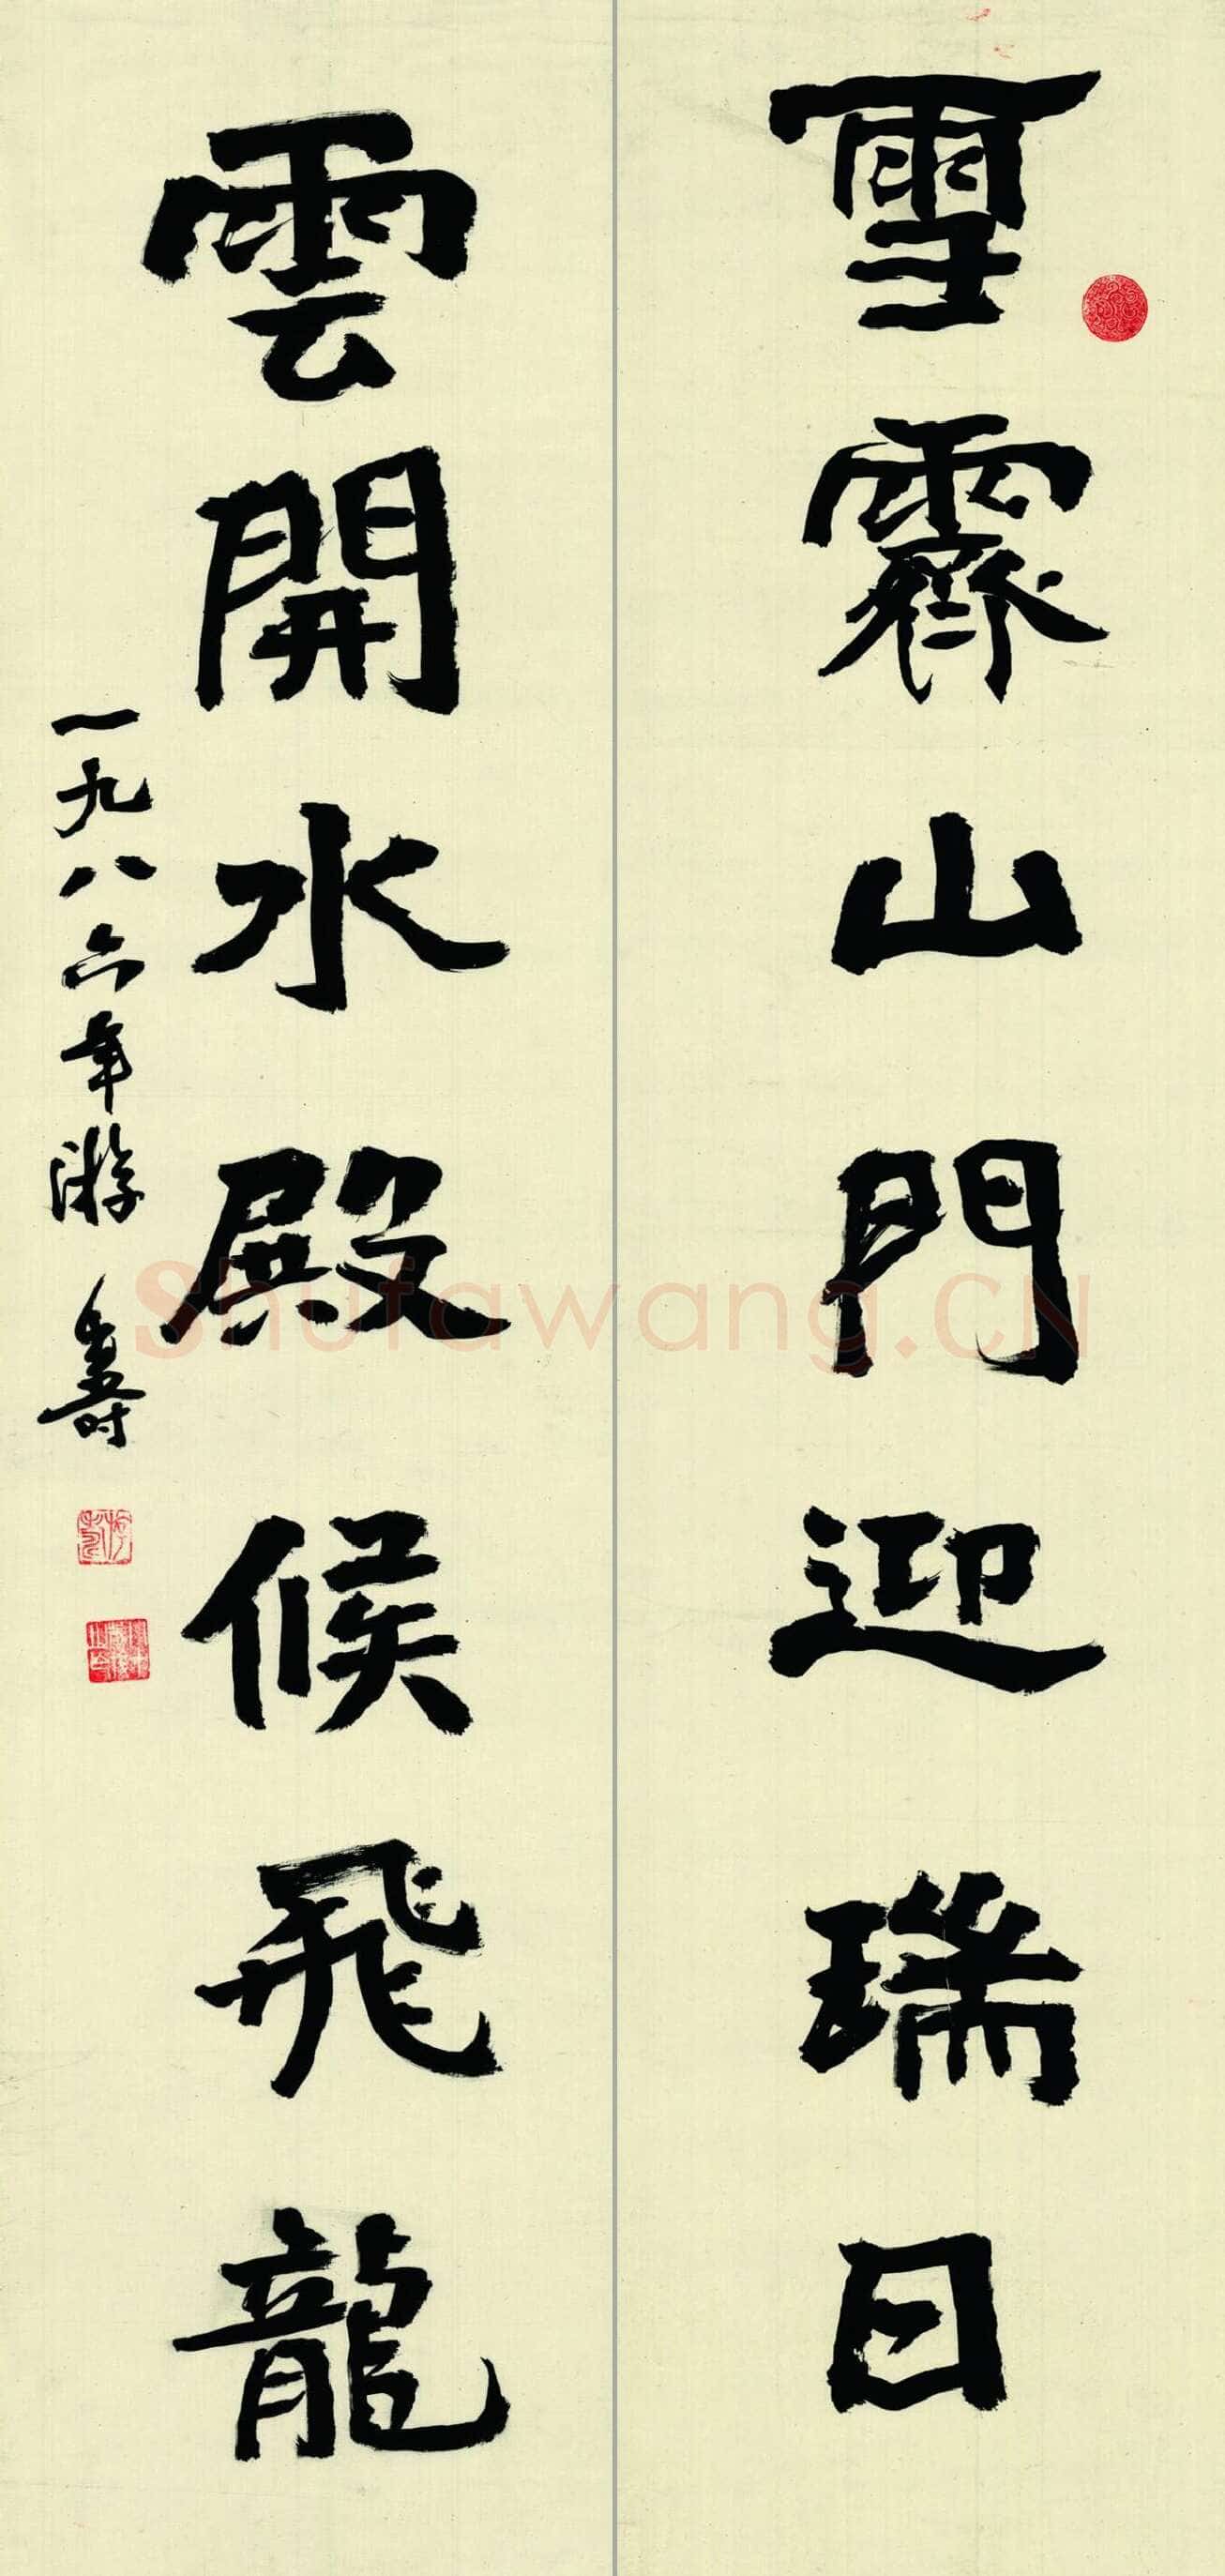 雪霽山門迎瑞日
雲開水殿候飛龍
一九八六年游壽
Shufawang.CN